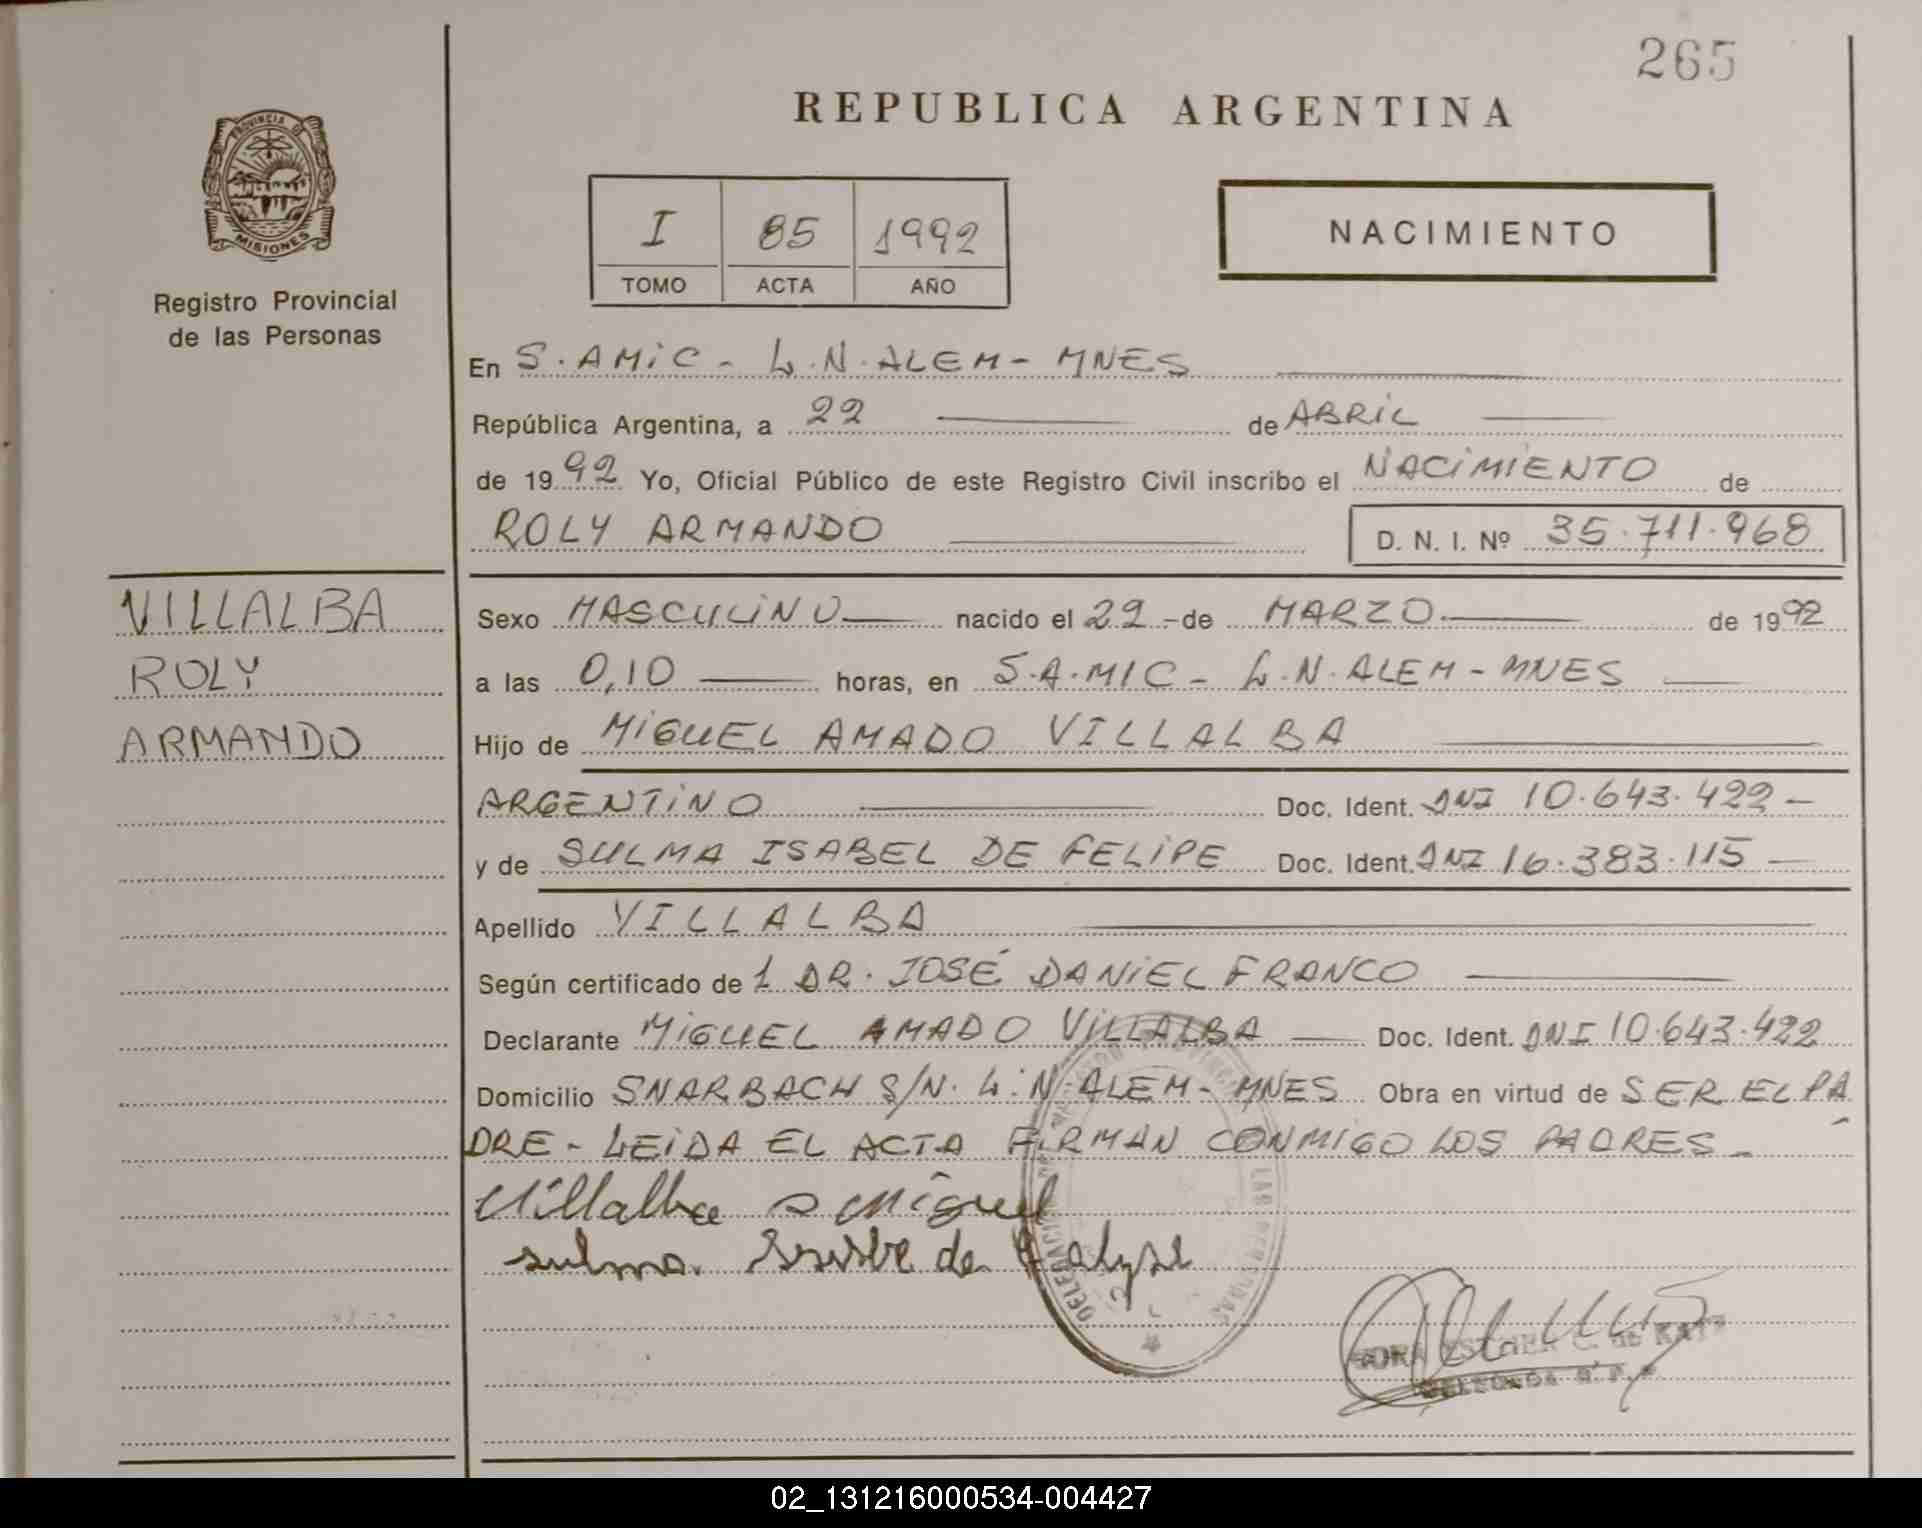 265
REPUBLICA ARGENTINA
PROVINCIA DE
MISIONES
Registro Provincial
de las Personas
I 85 1992
TOMO ACTA AÑO
NACIMIENTO
En S. AMIC - L.N. ALEM - MNES
República Argentina, a 22 de ABRIL
de 1992 Yo, Oficial Público de este Registro Civil inscribo el NACIMIENTO de
ROLY ARMANDO D. N. I. Nº 35.711.968
VILLALBA
ROLY
ARMANDO
Sexo MASCULINO nacido el 22 - de MARZO de 1992
a las 0,10 horas, en S.A.MIC - L.N. ALEM - MNES
Hijo de MIGUEL AMADO VILLALBA
ARGENTINO Doc. Ident. DNI 10.643.422 -
y de SULMA ISABEL DE FELIPE Doc. Ident. DNI 16.383.115 -
Apellido VILLALBA
Según certificado de 1 DR. JOSÉ DANIEL FRANCO
Declarante MIGUEL AMADO VILLALBA Doc. Ident. DNI 10.643.422
Domicilio SNARBACH S/N. L.N. ALEM - MNES Obra en virtud de SER EL PA
DRE - LEIDA EL ACTA FIRMAN CONMIGO LOS PADRES -
Villalba Miguel
sulma de
ESTHER C. de KATZ
DELEGADA
02_131216000534-004427